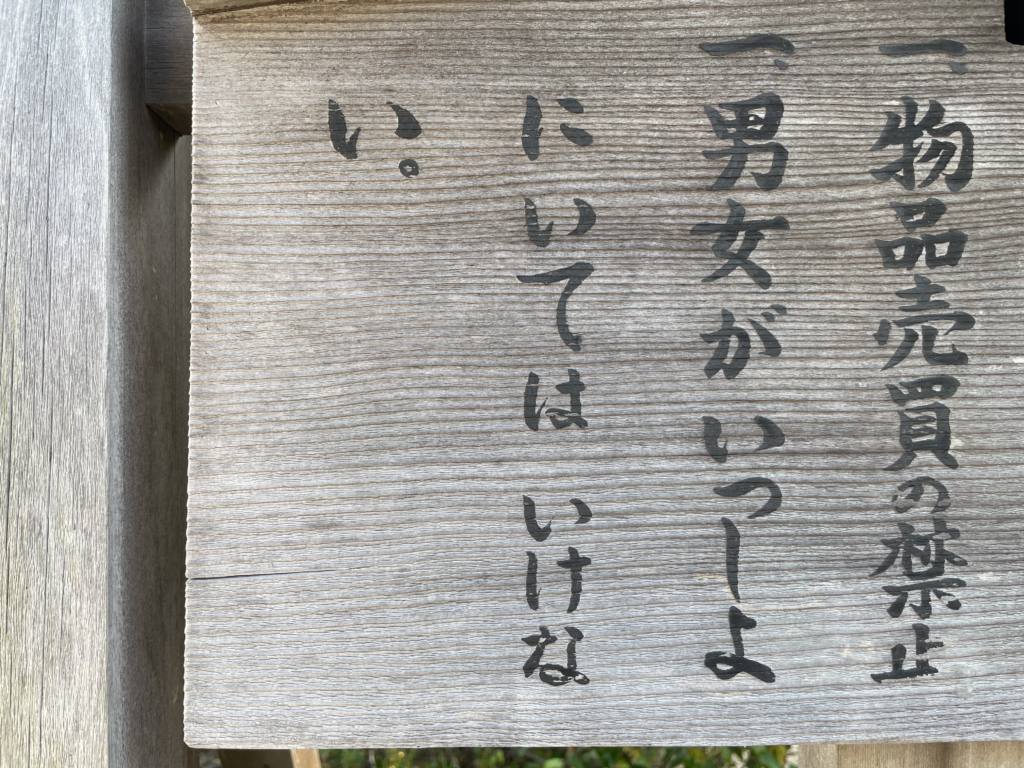 一、物品売買の禁止
一、男女がいつしよ
にいては いけな
い。